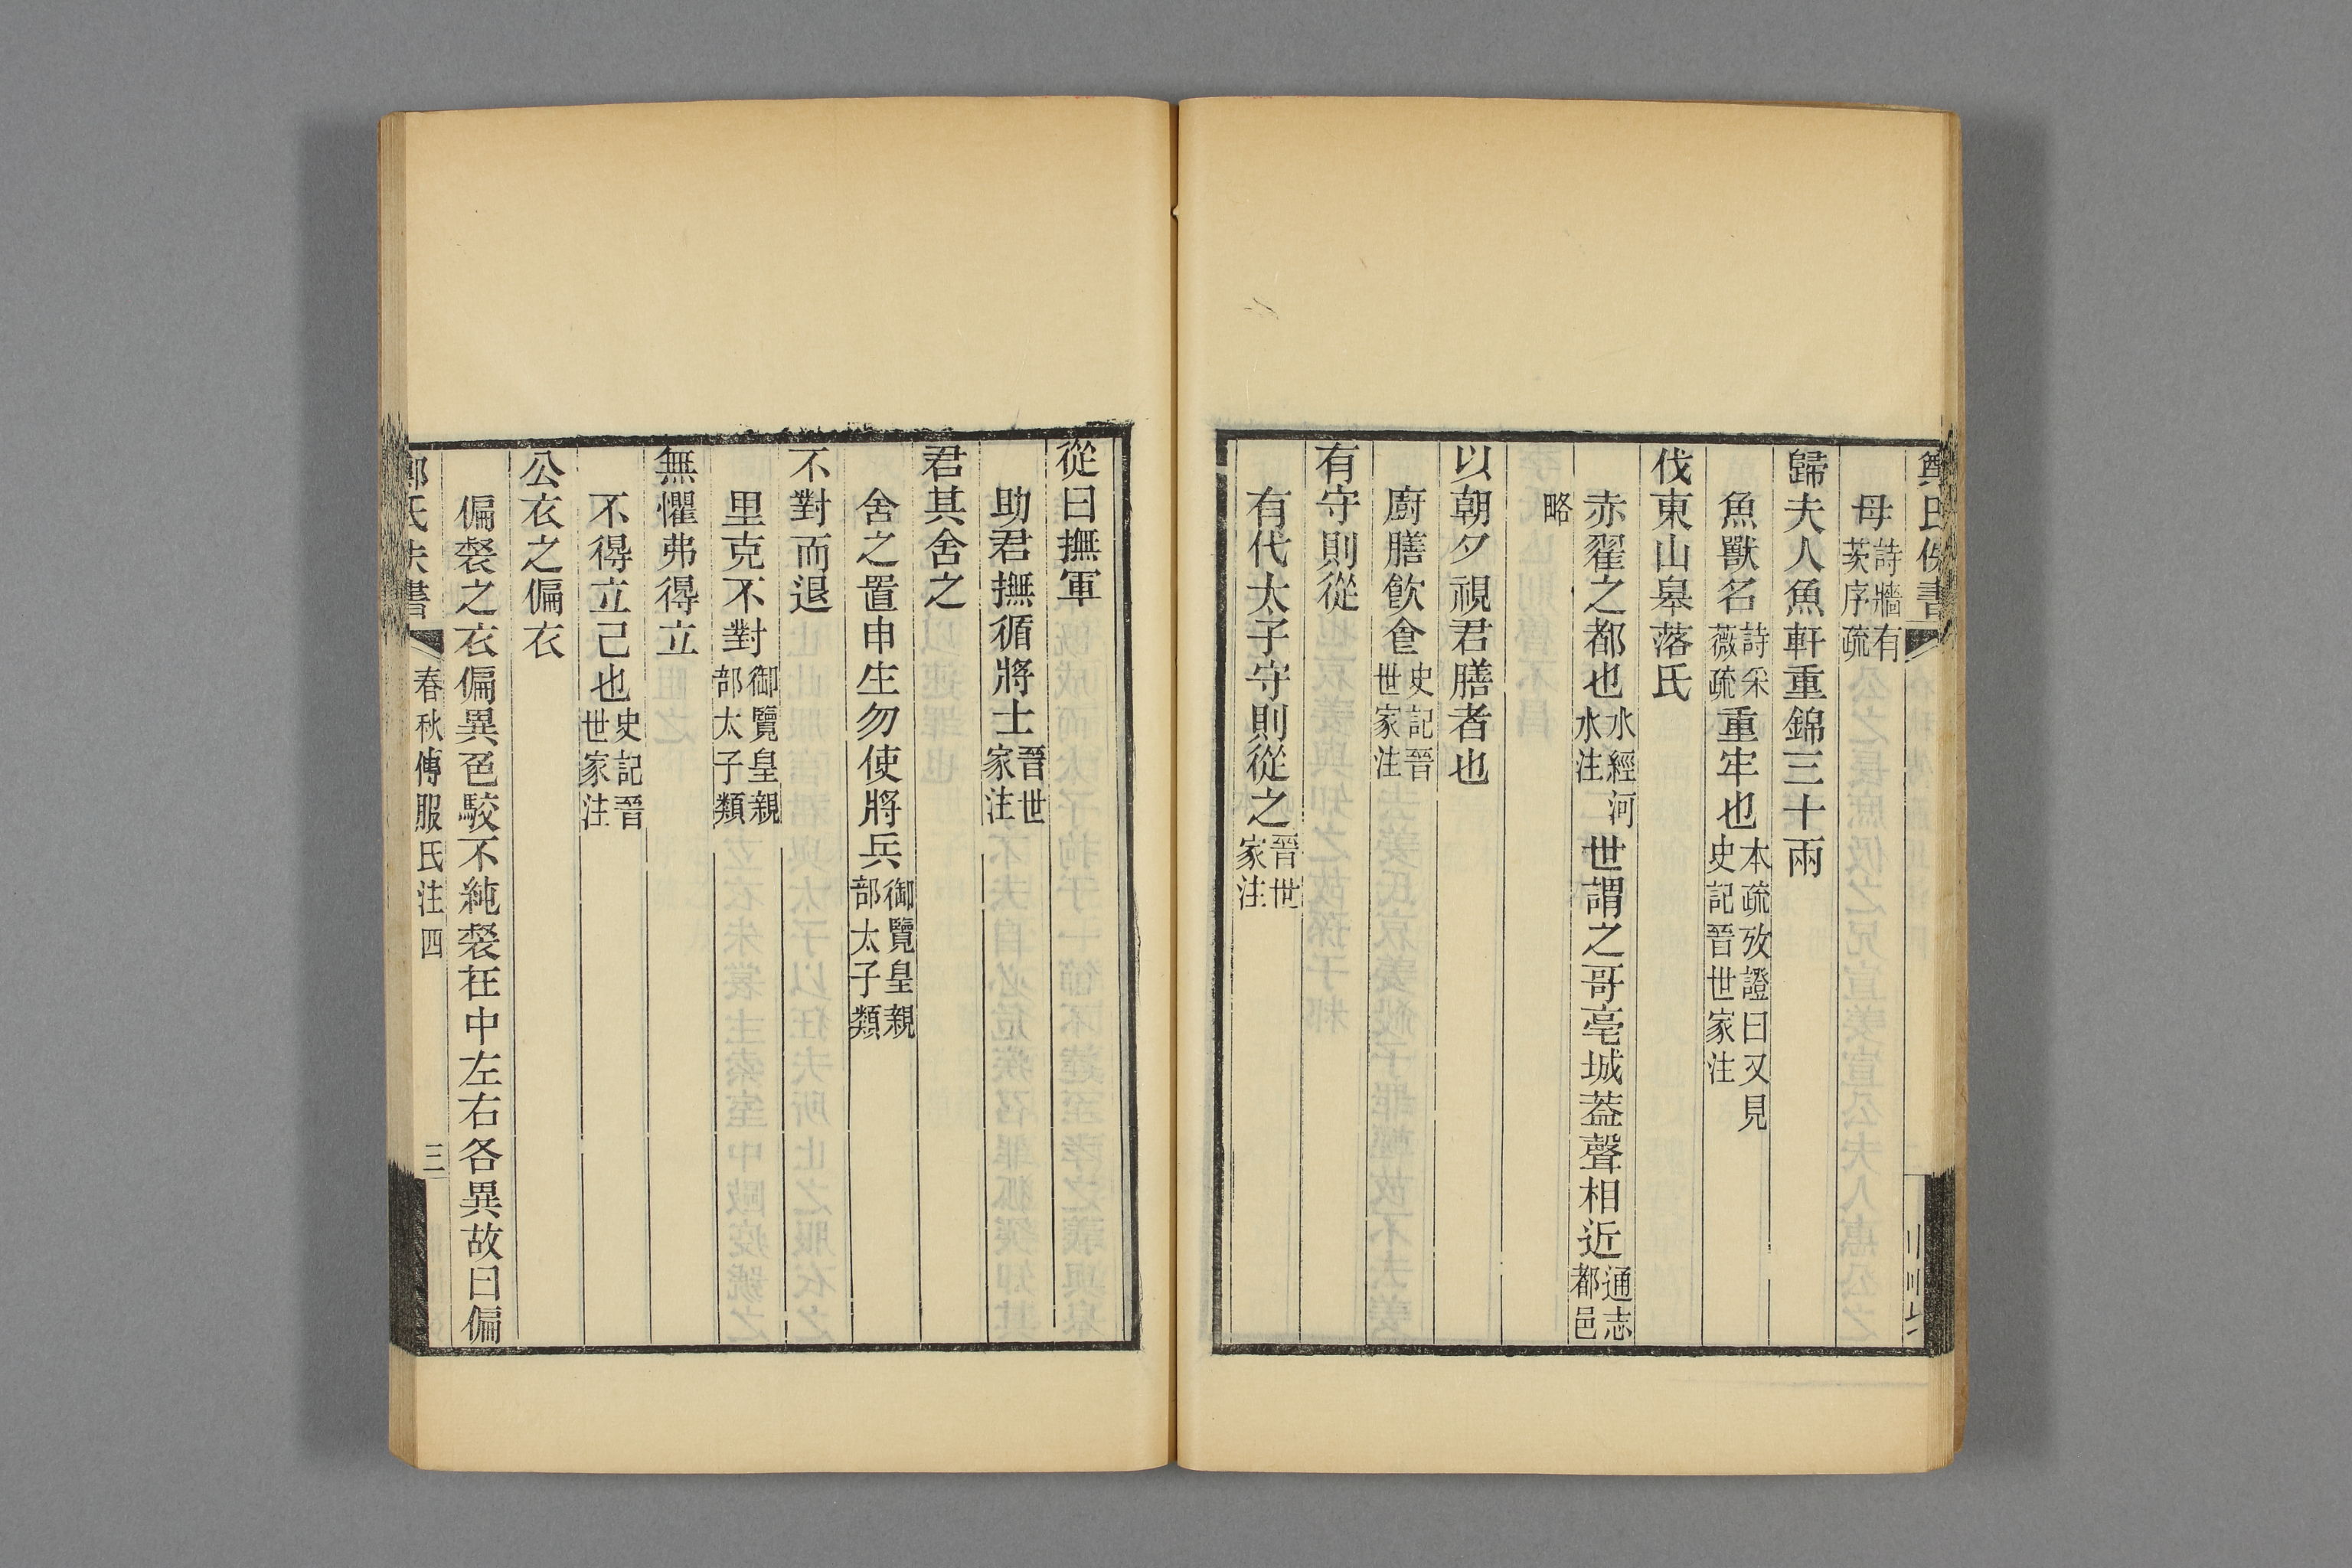 母詩牆有茨序疏
歸夫人魚軒重錦三十兩
魚獸名詩采薇疏重牢也本疏攷證曰又見史記晉世家注
伐東山皋落氏
赤翟之都也水經河水注世謂之哥亳城蓋聲相近通志都邑
略
以朝夕視君膳者也
廚膳飲食史記晉世家注
有守則從
有代太子守則從之晉世家注
從曰撫軍
助君撫循將士晉世家注
君其舍之
舍之置申生勿使將兵御覽皇親部太子類
不對而退
里克不對御覽皇親部太子類
無懼弗得立
不得立己也史記晉世家注
公衣之偏衣
偏裻之衣偏異色駁不純裻在中左右各異故曰偏
春秋傳服氏注四
三